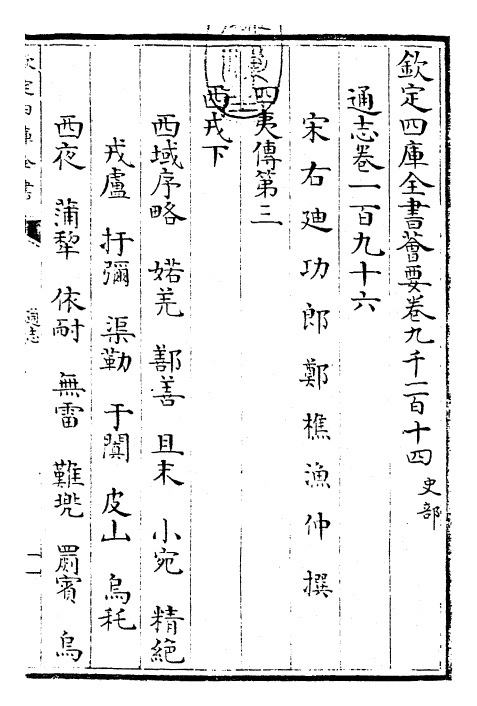 欽定四庫全書薈要卷九千二百十四 史部
通志卷一百九十六
宋右廸功郎鄭樵漁仲撰
四夷傳第三
西戎下
西域序略 婼羌 鄯善 且末 小宛 精絕
戎盧 扜彌 渠勒 于闐 皮山 烏秅
西夜 蒲犂 依耐 無雷 難兜 罽賓 烏
欽定四庫全書
通志
一